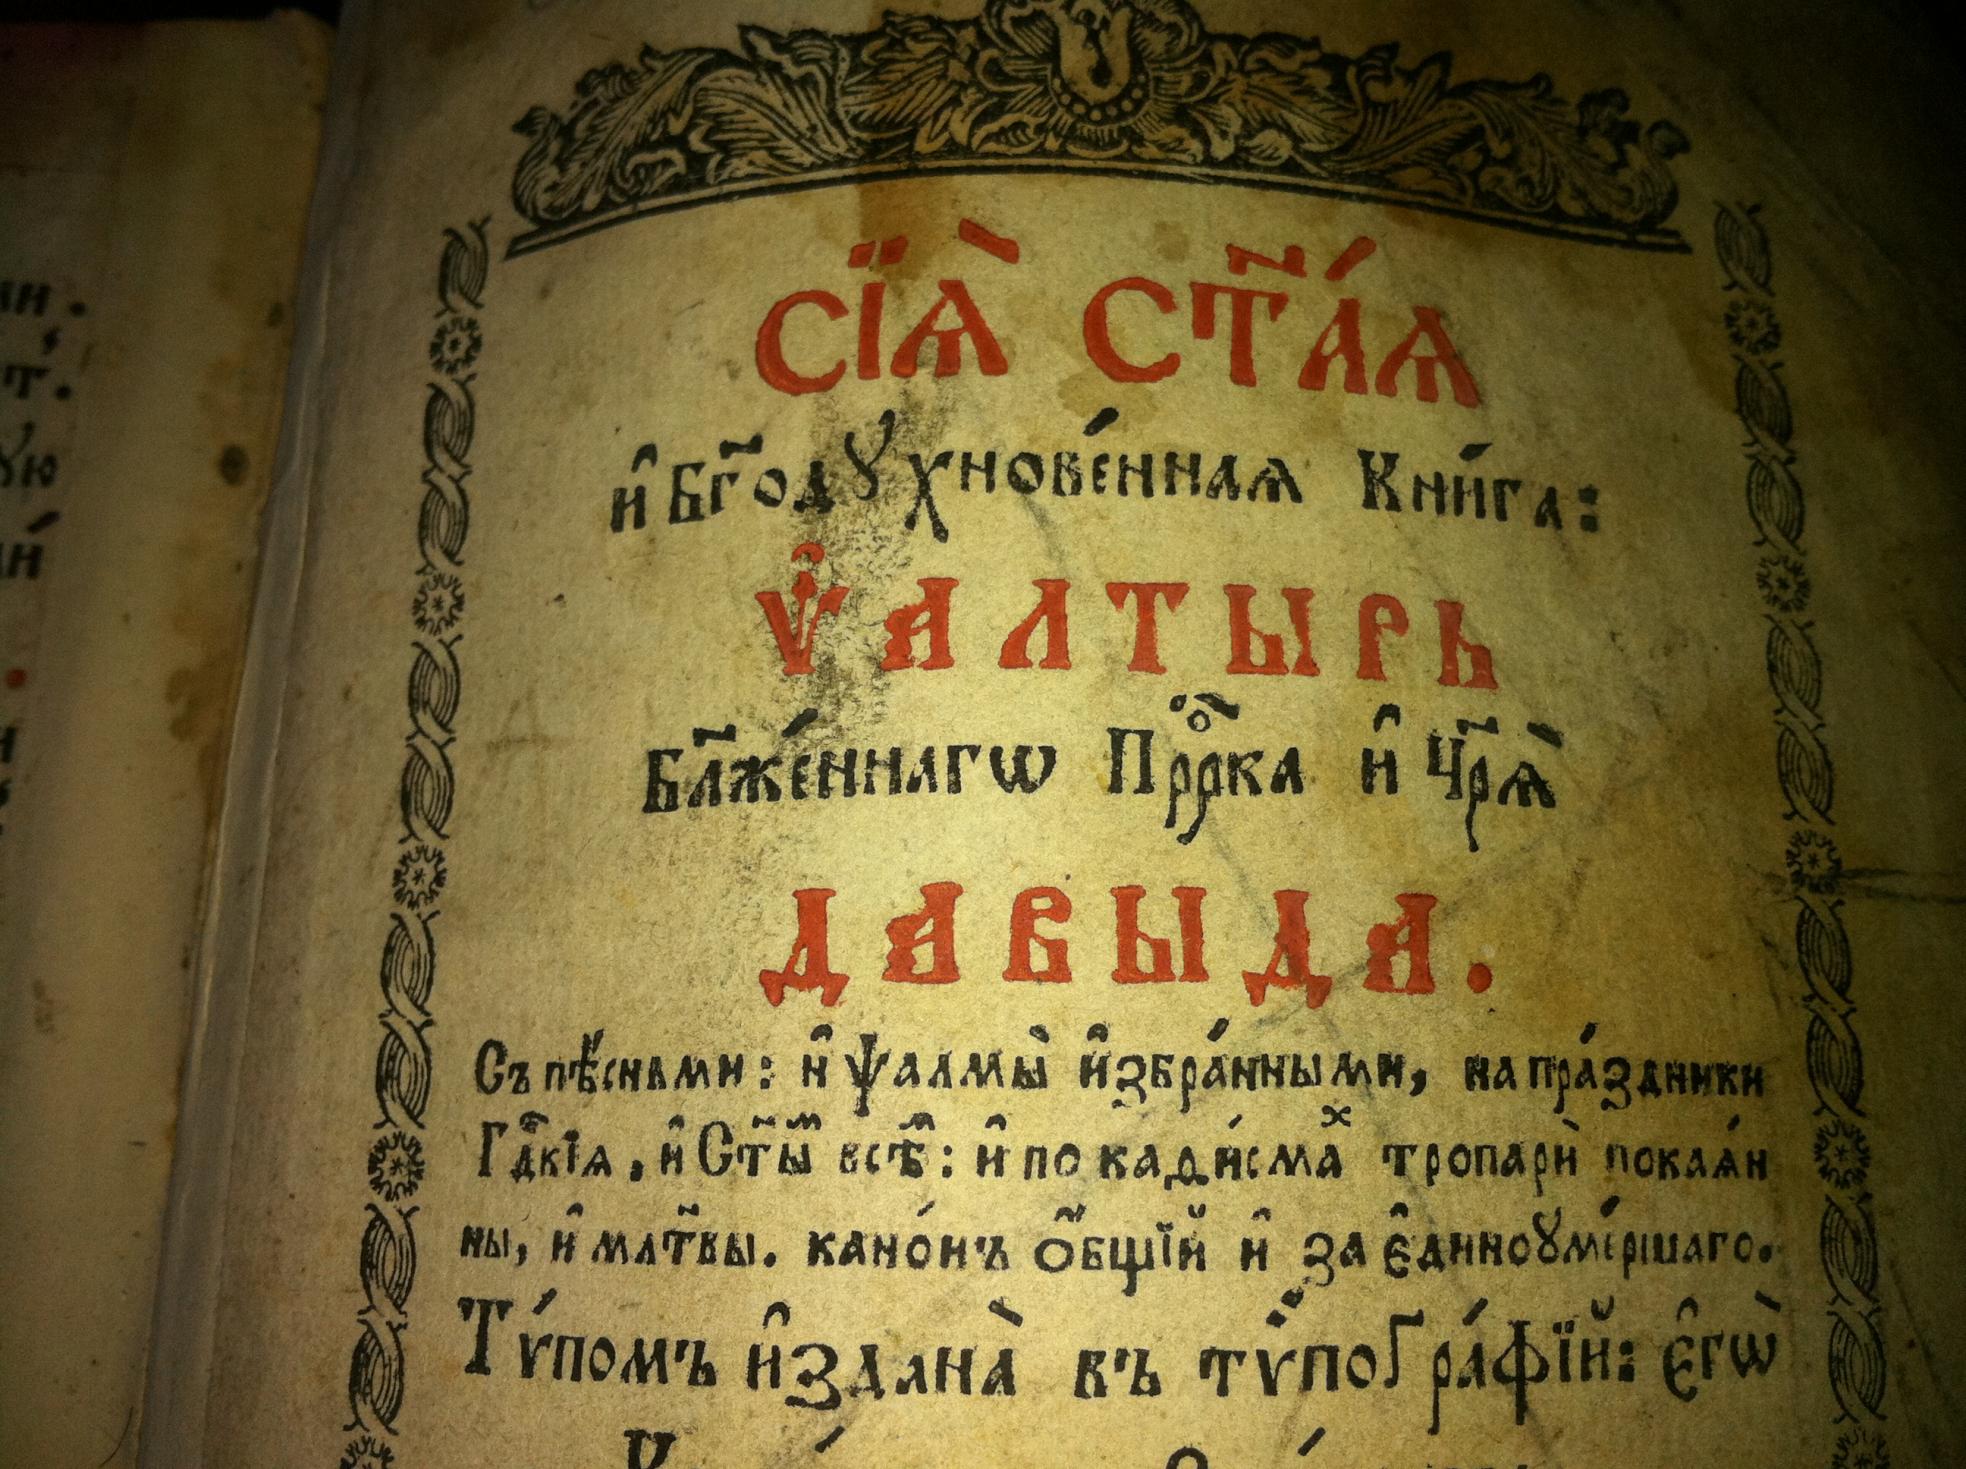 Сїѧ̀ ст҃а́ѧ
и҆ Бг҃одꙋхнове́ннаѧ Кни́га:
Ѱ҆АЛТЫРЬ
Бл҃же́ннагѡ Прⷪ҇рка и҆ Цр҃ѧ̀
ДАВЫДА.
Съ пѣ́сньми: и҆ ѱалмы̀ и҆збра́нными, на пра́здники
Гдⷭ҇кїѧ, и҆ Ст҃ыⷨ всѣⷨ: и҆ по каѳи́смаⷯ тропарѝ покаѧ́н
ны, и҆ мл҃твы. кано́нъ о҆́бщїй и҆ за є҆диноꙋме́ршаго.
Тѵ́помъ и҆здана̀ въ тѵпогра́фїй: є҆гѡ̀